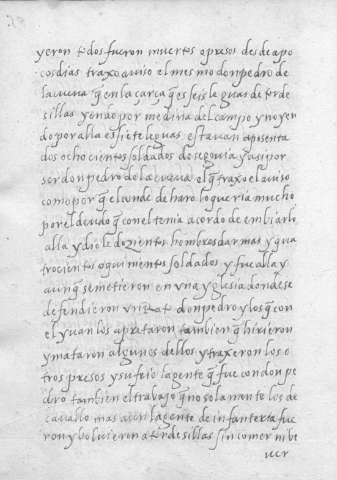 yeron todos fueron muertos o presos desde a po
cos dias traxo aviso el mesmo don pedro de
la cueva q̃ en la çarça q̃ es seis leguas de torde
sillas yendo por medina del campo y no yen
do por alla es siete leguas estavan aposenta
dos ochocientos soldados de segovia y asi por
ser don pedro de la cueva el q̃ traxo el aviso
como por q̃ el conde de haro lo queria mucho
por el deudo q̃ con el tenia acordo de embiarlo
alla y diole dozientos hombres darmas y qua
trocientos o quinientos soldados y fue alla y
aunq̃ se metieron en una yglesia donde se
defendieron don pedro y los q̃ con
el yvan los apretaron tambien q̃ hirieron
y mataron algunos dellos y traxeron los o
tros presos y sufrio la gente q̃ fue con don pe
dro tambien el trabajo q̃ no solamente los de
cavallo mas aun la gente de infanteria fue
ron y bolvieron a tordesillas sin comer ni be
ver